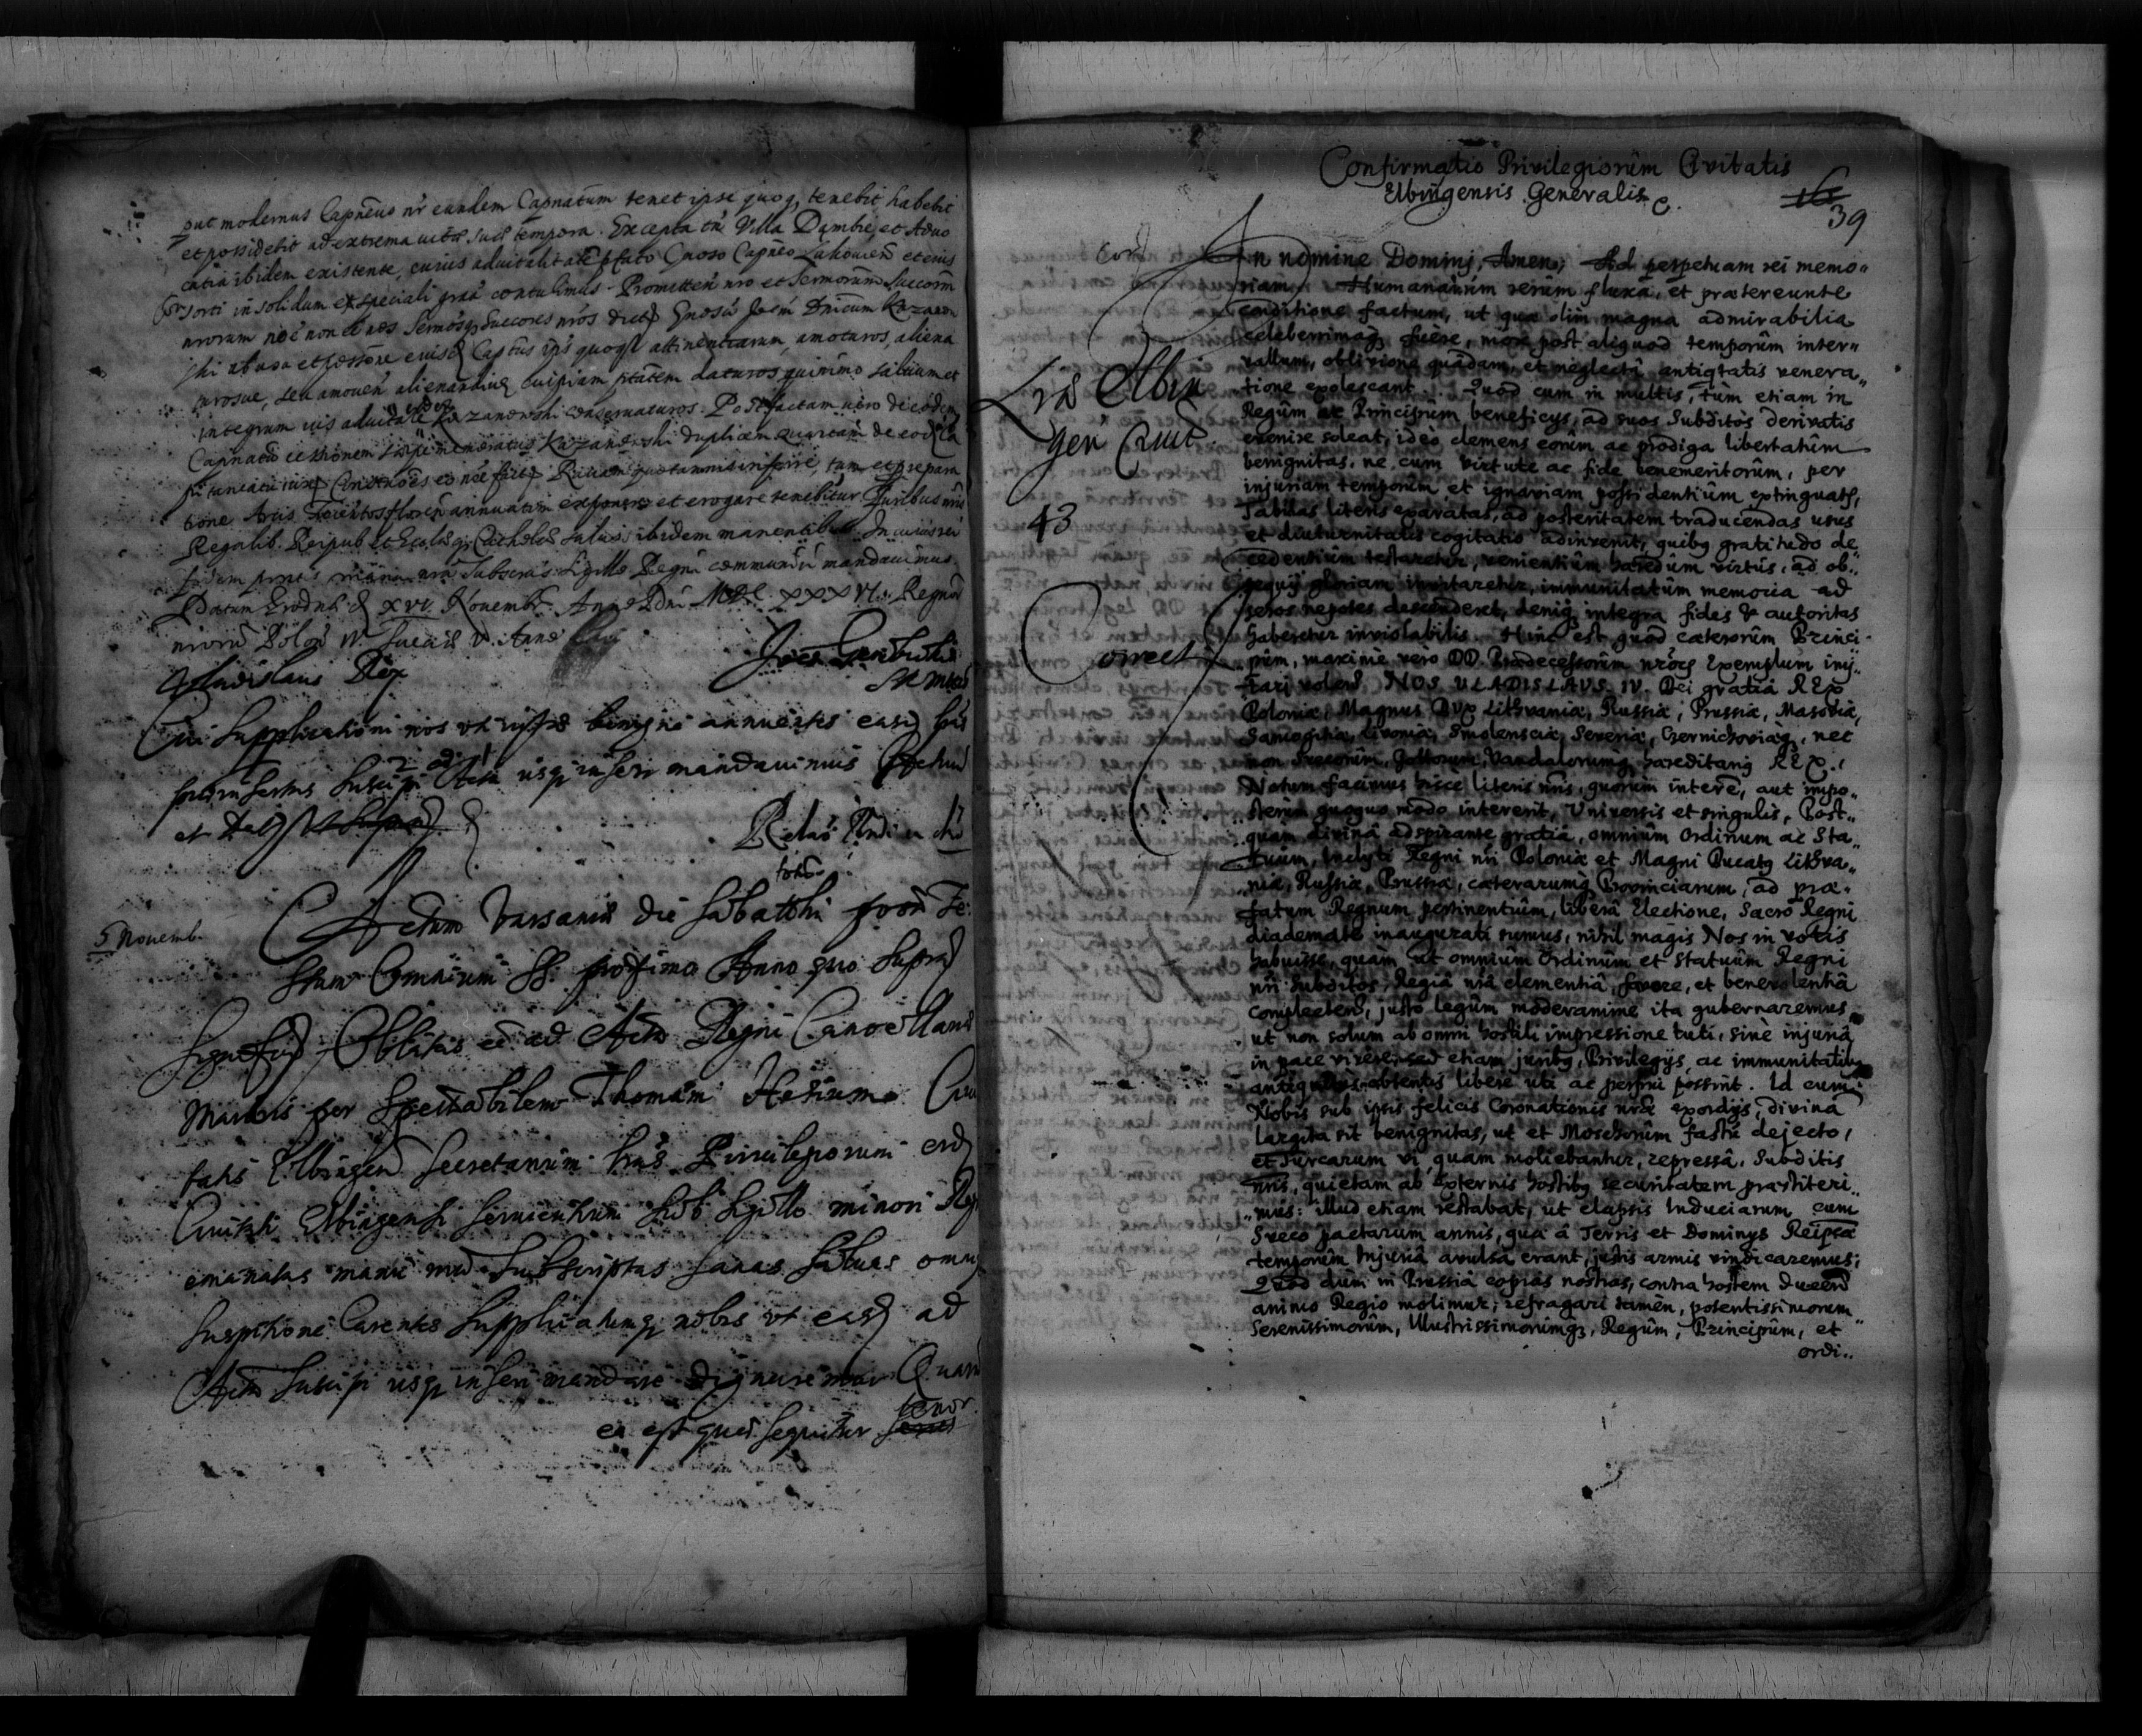 put modernus Capneus nr eundem Capnatum tenet ipse quoq, tenebit habebit
et possidebit ad extrema vitae suae tempora. Excepta tn Villa Dambie, et Advo
catia ibidem existente, cuius advitalitate Gnoso Capneo et eius
Consorti in solidum ex speciali gratia contulimus. Promitten nro et Sermorum Succorum
nrorum noe non Sermosq Succores nros dict Gnosum Joem Dnicum Kazanow
ski ab usu et possone eiusd Captus ips quoq attinentiarum, amoturos, aliena
turosve, seu amoven alienandive cuipiam ptatem daturos quinimo salvum et
integrum ius advitale eidem Kazanowski conservaturos. Post factam vero de eodem
Capnatu cessionem memoratus Kazanowski duplicem quartam de eod Ca
pitaneatu tam et prepara
tione Arcis floren annuatim exponere et erogare tenebitur Juribus nris
Regalib. Reipub et Ecclaeq Catholcae salvis ibidem manentibus. In cuius rei
fidem pntes manu nra Subscras Sigillo Regni communiri mandavimus.
Datum Grodnae d XVI. Novembr. Anno Dni MDC XXXVI. Regnor
nrorum Polon IV. Sueciae V. Anno
Vladislaus Rex
Cui Supplicationi nos benigne annuentes easd lras
praeinsertas Suscipi et Actis usq inseri mandavimus Actum
et Dat
Relao
5 Novemb.
Actum Varsaviae die Sabbathi post Fe
stum Omnium SS. proximo Anno quo Supra
Significa Oblatas ee ad Acta Regni Cancellariae
Maioris per Spectabilem Thomam Hesium Civi
tatis Elbingen Secretarium lras Privilegiorum eid
Civitati Elbingensi Servientium Sub Sigillo minori Reg
emanatas manu nra Subscriptas Sanas Salvas omniq
Suspitione Carentes Supplicatumq nobis ut easd ad
Acta Suscipi usq inseri mandare dignaremur Quarum
tenor
ea est quae sequitur
Confirmatio Privilegiorum Civitatis
Elbingensis Generalis C.
16
39
Cord
Lrae Elbin
gen Civit.
43
Correct
In nomine Dominj, Amen; Ad perpetuam rei memo„
riam. Humanarum rerum fluxâ, et prætereunte
conditione factum, ut quæ olim magna admirabilia
celeberrimaq fuêre, mox post aliquod temporum inter„
vallum, oblivione quâdam, et neglecti antiqtatis venera„
tione exolescant. Quod cum in multis, tum etiam in
Regum ac Principum beneficys, ad suos Subditos derivatis
evenire soleat, ideò clemens eorum ac prodiga libertatum
benignitas, ne cum virtute ac fide benemeritorum, per
injuriam temporum et ignaviam possidentium extinguatr,
Tabulas literis exaratas, ad posteritatem traducendas usus
et diuturnitatis cogitatio adinvenit, quibq gratitudo de
cedentium testaretur, venientium hæredum virtus, ad ob„
sequij gloriam invitaretur, immunitatum memoria ad
seros nepotes descenderet, deniq integra fides & autoritas
haberetur inviolabilis. Hinc est quod cæterorum Princi„
pum, maximè verò DD. Prædecessorum nrorq Exemplum imj„
tari volens NOS ULADISLAUS IV. Dei gratiâ REX
Poloniæ, Magnus DUX Lithvaniæ, Russiæ, Prussiæ, Masoviæ,
Samogitiæ, Livoniæ, Smolensciæ, Severiæ, Czernichoviæq, nec
non Suecorum, Gottorum, Vandalorumq hæreditariq REX.
Notum facimus hisce literis nris, quorum interē, aut impo„
sterum quoquo modo intererit, Universis et singulis, Post„
quam divinâ adspirante gratiâ, omnium Ordinum ac Sta„
tuum, Inclyti Regni nri Poloniæ et Magni Ducatq Lithva„
niæ, Russiæ, Prussiæ, cæterarumq Provinciarum, ad præ„
fatum Regnum pertinentium, liberâ Electione, Sacro Regni
diademate inaugurati sumus, nihil magis Nos in votis
habuisse, quàm ut omnium Ordinum et Statuum Regni
nri Subditos, Regiâ nrâ clementiâ, favore, et benevolentiâ
complectens, justo legum moderanime ita gubernaremus
ut non solum ab omni hostili impressione tuti, sine injuriâ
in pace viverent, sed etiam juribq, Privilegijs, ac immunitatibq
antiquitùs obtentis liberè uti ac perfrui possint. Id cum
Nobis sub ipsis felicis Coronationis nræ exordijs, divina
largita sit benignitas, ut et Moschorum fastu dejecto,
et Turcarum vi, quam moliebantur, repressâ, Subditis
nris, quietam ab externis hostibq securitatem præstiteri„
mus: illud etiam restabat, ut elapsis Induciarum cum
Sueco pactarum annis, quæ à Terris et Dominys Reipcæ
temporum Injuriâ avulsa erant, justis armis vindicaremus;
Quod dum in Prussiâ copias nostras, contra hostem ducend
animo Regio molimur, refragari tamen, potentissimorum
Serenissimorum, Illustrissimorumq, Regum, Principum, et
ordi„